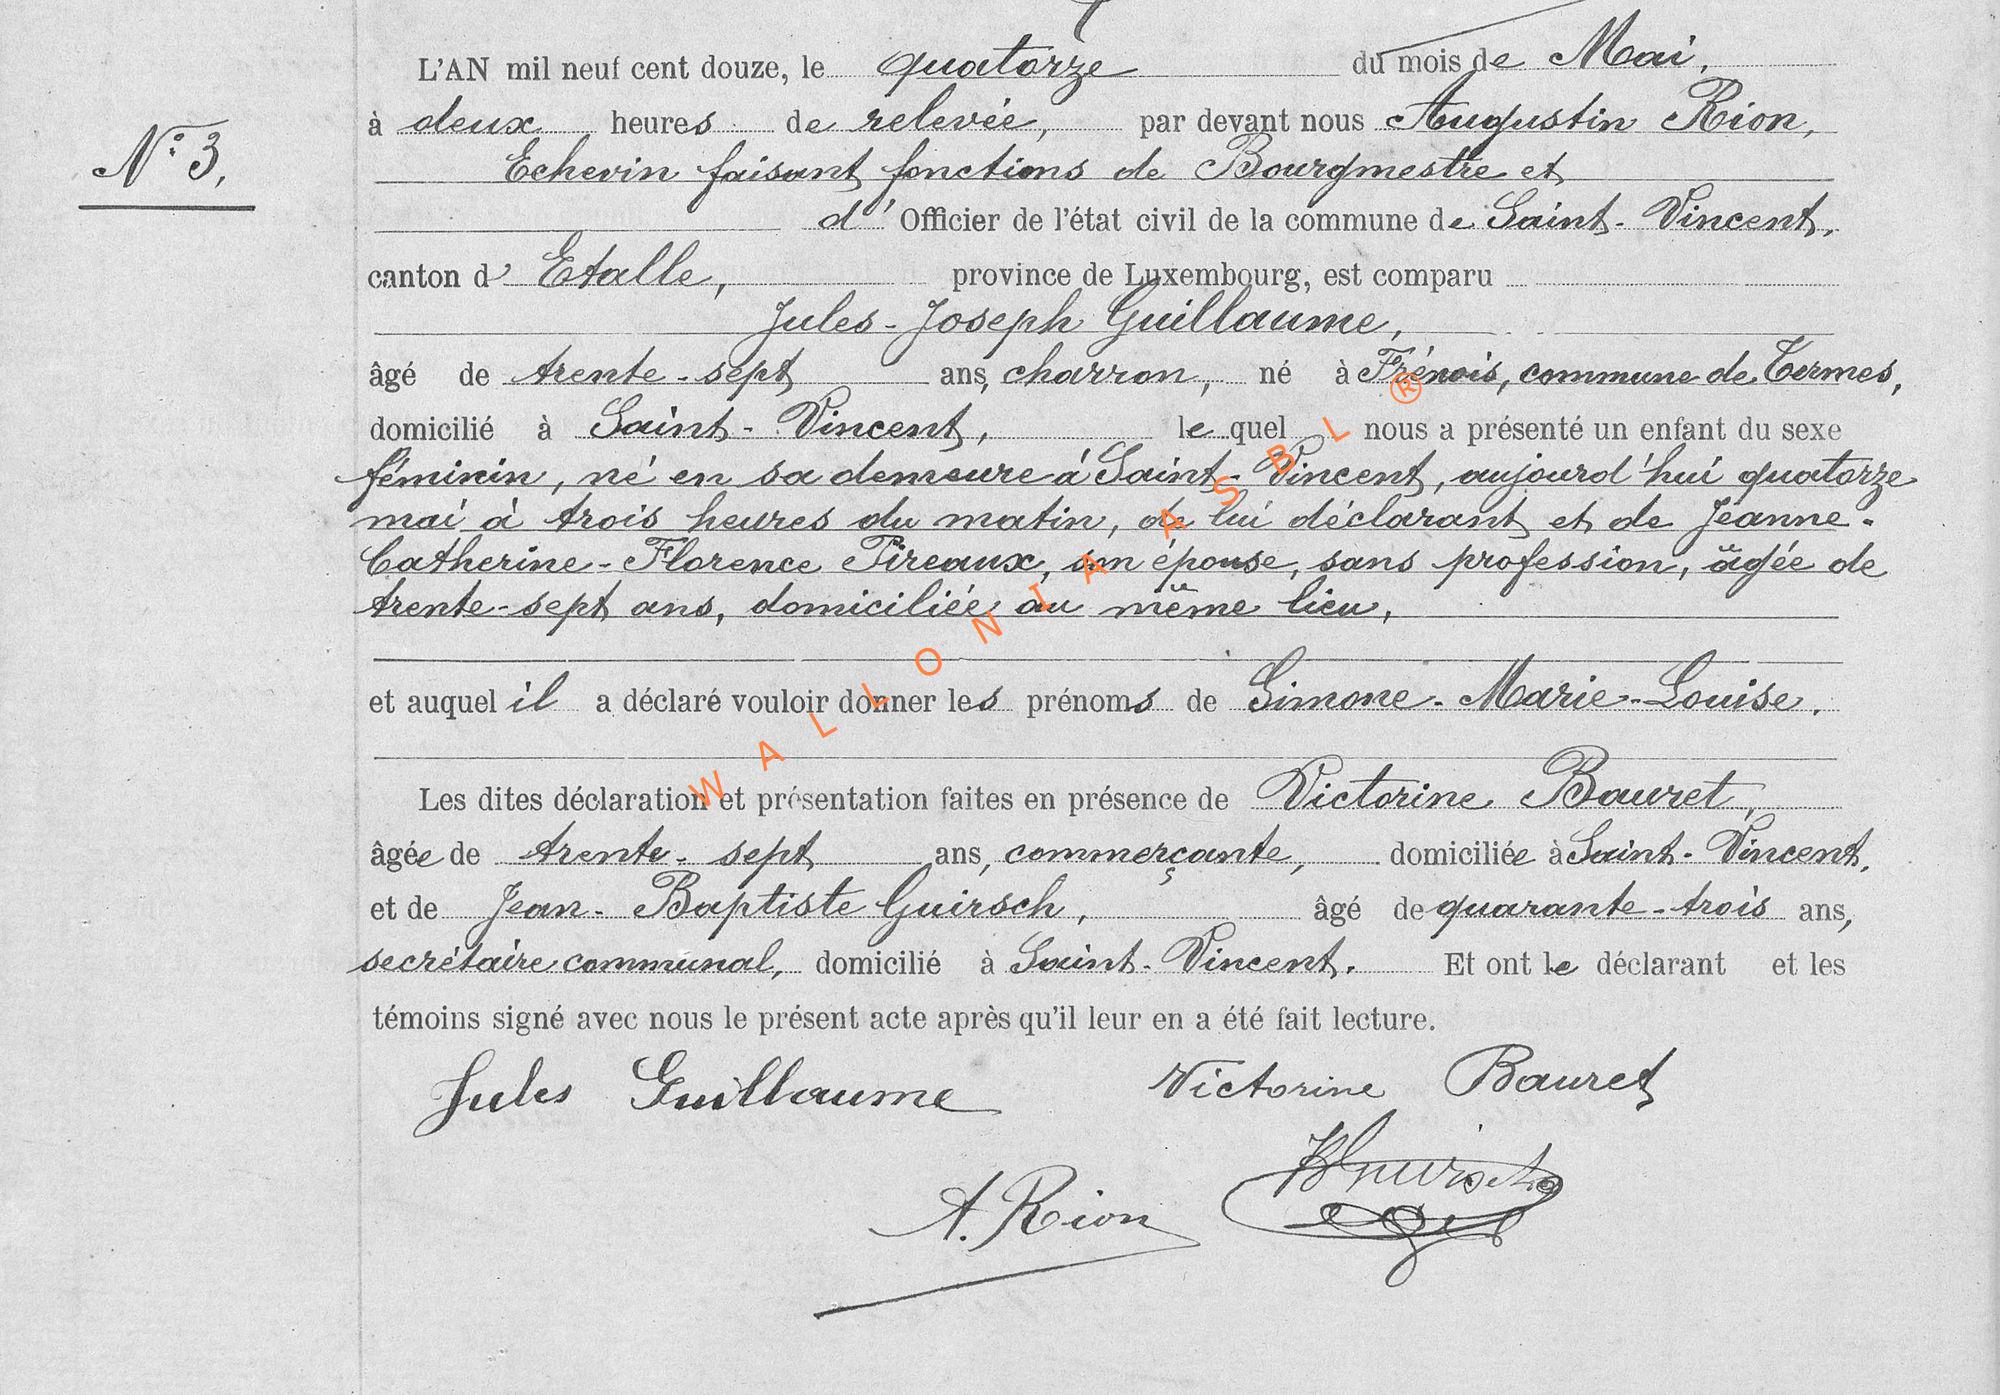 L'AN mil neuf cent douze, le quatorze du mois de Mai,
à deux heures de relevée, par devant nous Augustin Rion,
N° 3.
Echevin faisant fonctions de Bourgmestre et
d' Officier de l'état civil de la commune de Saint-Vincent,
canton d' Etalle, province de Luxembourg, est comparu
Jules-Joseph Guillaume,
âgé de trente-sept ans, charron, né à Frénois, commune de Termes,
domicilié à Saint-Vincent, le quel nous a présenté un enfant du sexe
féminin, né en sa demeure à Saint-Vincent, aujourd'hui quatorze
mai à trois heures du matin, de lui déclarant et de Jeanne-
Catherine-Florence Pireaux, son épouse, sans profession, âgée de
trente-sept ans, domiciliée au même lieu,
et auquel il a déclaré vouloir donner les prénoms de Simone-Marie-Louise.
Les dites déclaration et présentation faites en présence de Victorine Bauret,
âgée de trente-sept ans, commerçante, domiciliée à Saint-Vincent,
et de Jean-Baptiste Guirsch, âgé de quarante-trois ans,
secrétaire communal, domicilié à Saint-Vincent. Et ont le déclarant et les
témoins signé avec nous le présent acte après qu'il leur en a été fait lecture.
Jules Guillaume Victorine Bauret
A. Rion JBGuirsch
WALLONIA ASBL ®